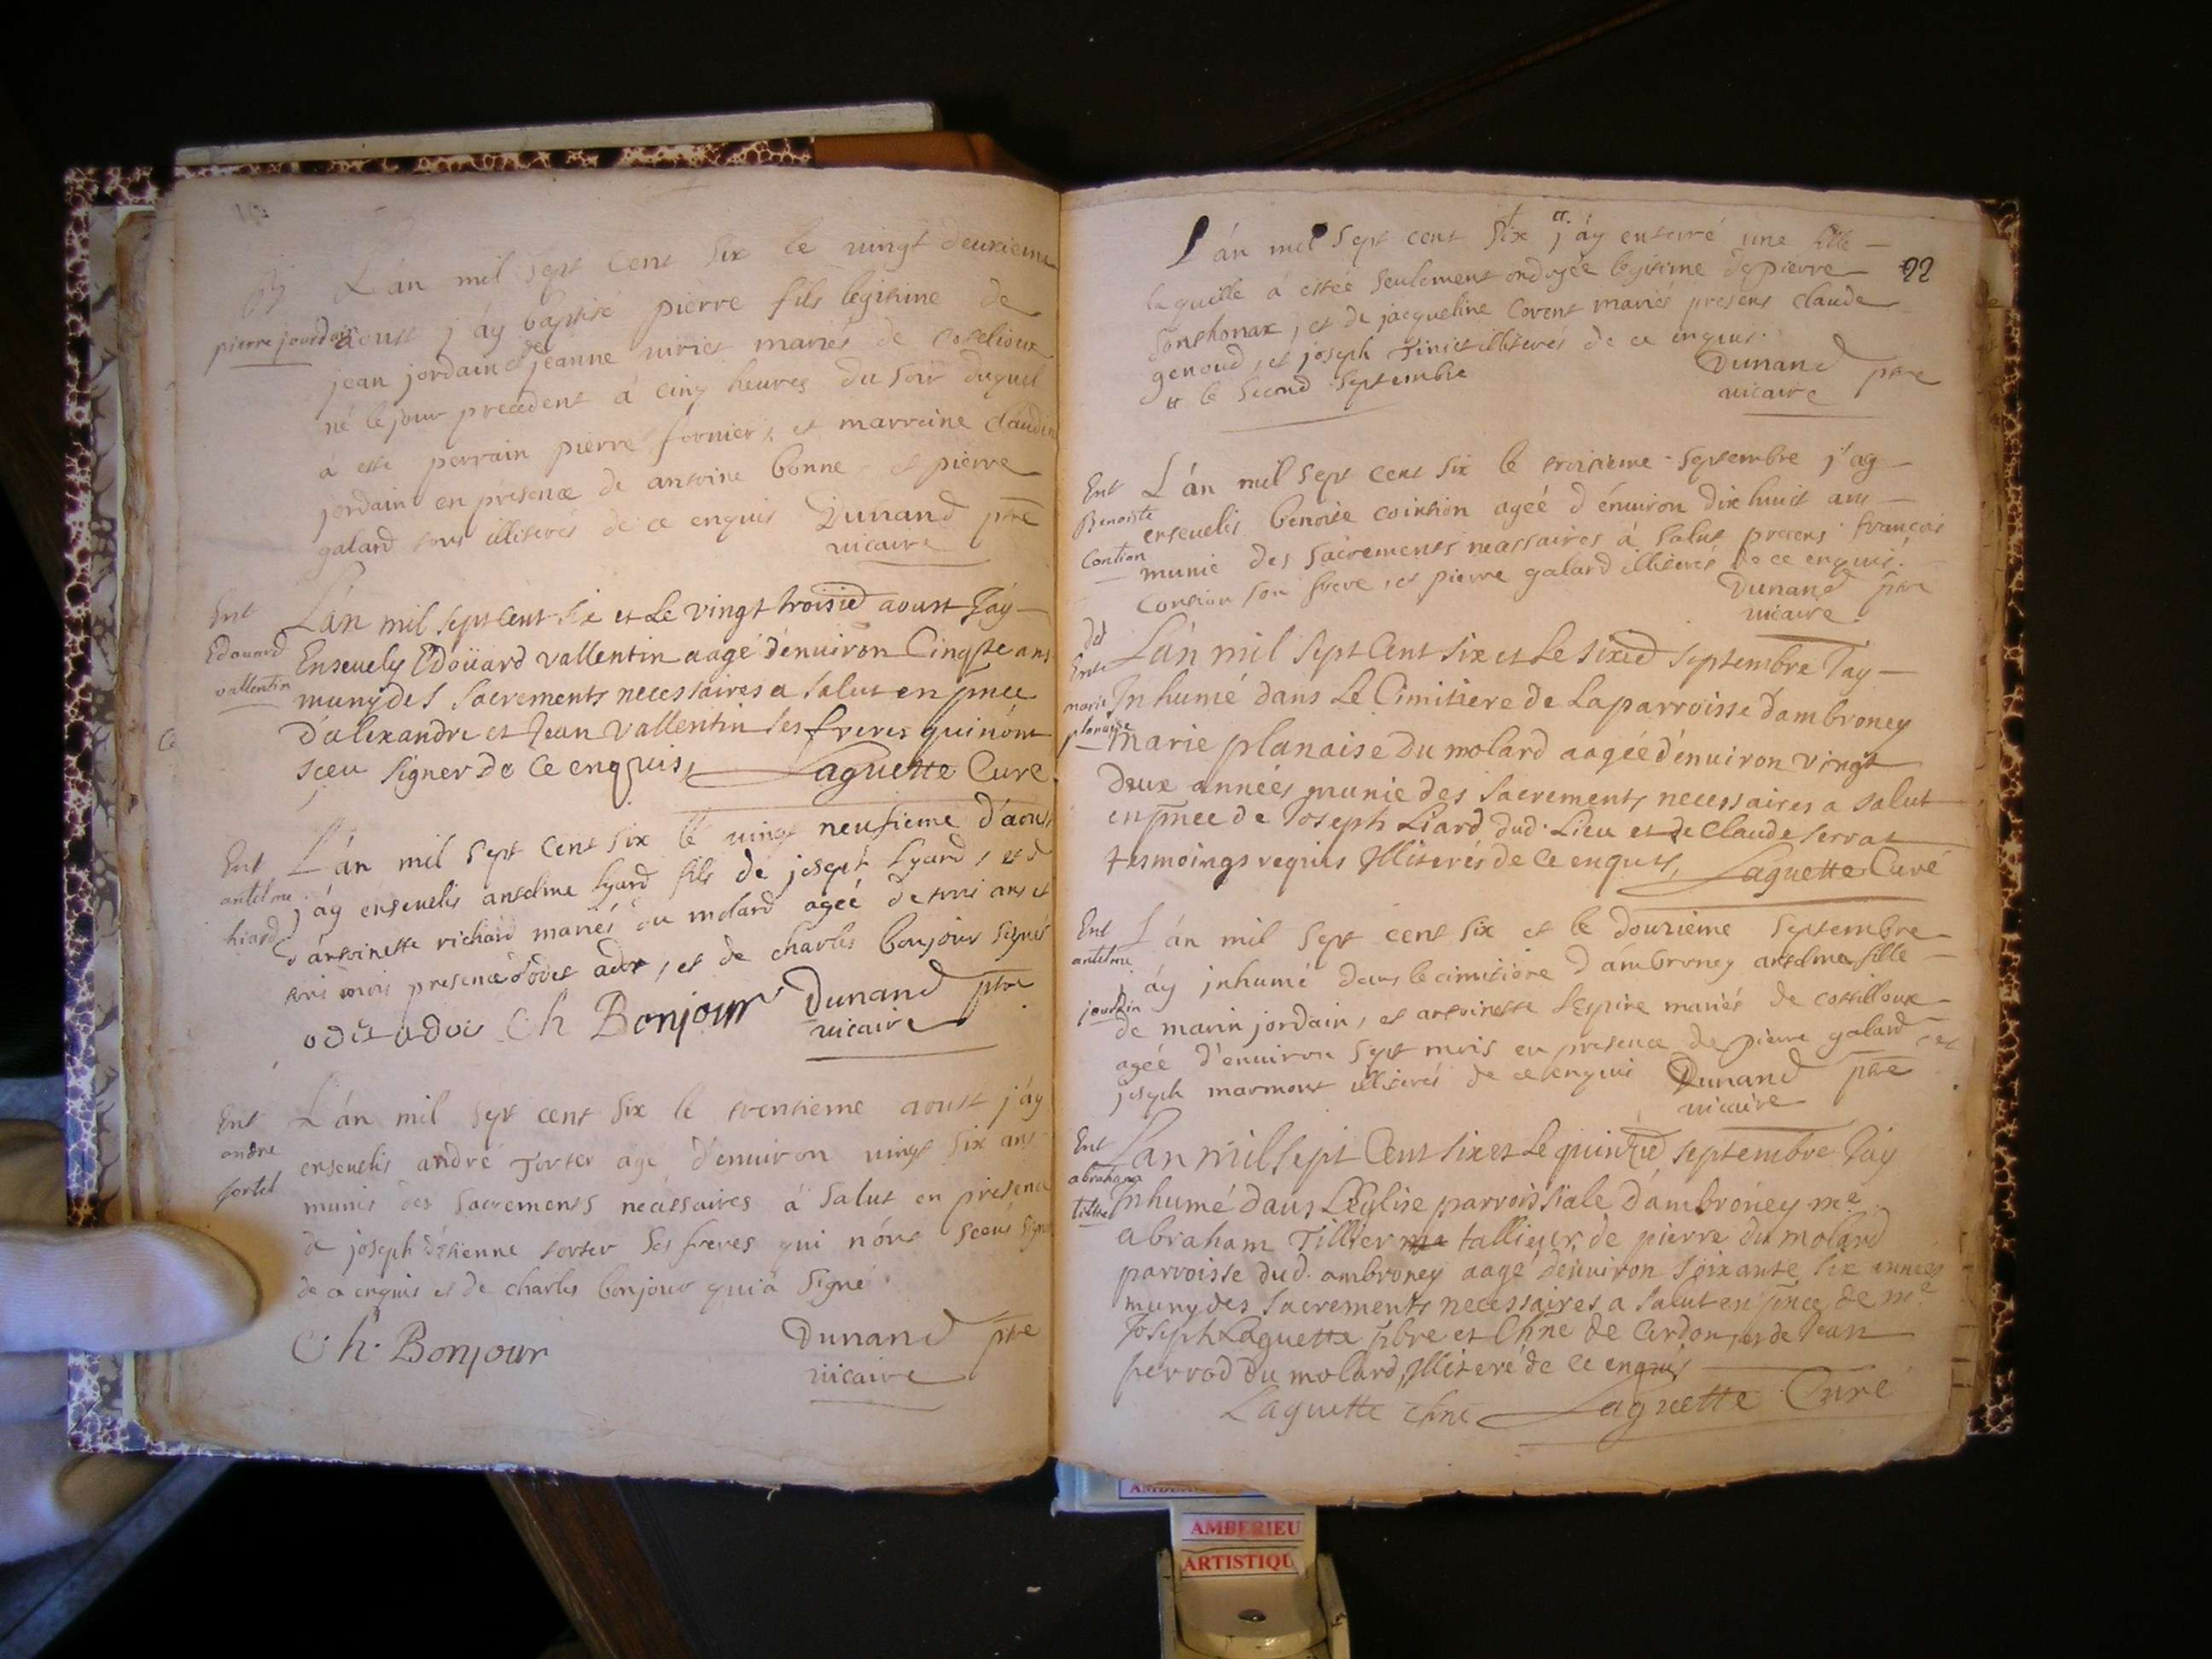 L'án mil sept cent six le vingt deuxieme
pierre jourdain
aoust j'áy baptisé pierre fils legitime de
jean jordain et de jeanne viriet mariés de cotelioux
né le jour precedent á cinq heures du soir duquel
á esté perrain pierre fornier, et marraine claudin
jordain en presence de antoine bonne et pierre
galard tous illiterés de ce enquis Dunand ptre
vicaire
Ent
Edouard
vallentin
L'án mil sept cent six et Le vingt troisied aoust Jáy
Ensevely Edoüard vallentin aagé d'enuiron Cinqte ans
muny des Sacrements necessaires a salut en pnce
d'alexandre et Jean vallentin ses freres qui n'ont
sceu signer de Ce enquis, Laguette Curé
Ent
antelme
liard
L'án mil sept cent six le vingt neufieme d'aoust
j'áy enseuelis antelme lyard fils de josept lyard, et d
d'antoinette richard mariés du molard ageé de trois ans et
trois mois presence d'odet ador, et de charles bonjour signés
odet ador Ch Bonjour Dunand ptre
vicaire
Ent
andre
tortel
L'án mil sept cent six le trentieme aoust j'áy
enseuelis andré Torter agé d'enuiron vingt six ans
munis des Sacrements necessaires á salut en presence
de joseph Etienne torter ses freres qui n'ónt sceus signe
de ce enquis et de charles bonjour qui á signé
Ch. Bonjour Dunand ptre
vicaire
22
L'án mil sept cent six j'áy enterré une fille
laquelle á estée seulement ondoyée legitime de pierre
Sonthonax, et de jacqueline Corent mariés presens claude
genoud, et joseph Tiniet illiterés de ce enquis.
le second septembre Dunand ptre
vicaire
Ent
Benoite
Contion
L'án mil sept cent six le troisieme septembre j'ay
enseuelis benoite cointion ageé d'énuiron dix huit ans
munie des sacrements necessaires á salut presens françois
Contion son frere, et pierre galard illiterés de ce enquis.
Dunand ptre
vicaire
Ente
marie
planaise
L'án mil sept Cent six et Le sixied septembre Jay
Inhumé dans Le Cimitiere de La parroisse d'ambroney
Marie planaise Du molard aagée d'enuiron vingt
deux années munie des Sacrements necessaires a salut
en pnce de Joseph Liard dud. Lieu et de Claude serrat
tesmoings requis Illiterés de Ce enquis, Laguette Curé
Ent
antelme
jourdain
L'án mil sept cent six et le douzieme septembre
j'áy jnhumé dans le cimitiere d'ámbroney antelme fille
de marin jordain, et antoinette Lespine mariés de cottilloux
ageé d'enuiron sept mois en presence de pierre galard et
joseph marmont illiterés de ce enquis Dunand ptre
vicaire
Ent
abraham
tillier
L'an mil sept Cent six et Le quinzied septembre Jáy
Inhumé dans L'Eglise parroissiale d'ambroney me
Abraham Tillier tallieur de pierre du molard
parroisse dud. ambroney aagé d'enuiron soixante six années
muny des sacrements necessaires a salut en pnce de me
Joseph Laguette pbre et Chne de Cerdon, et de Jean
ferrod du molard, Illiteré de Ce enquis
Laguette chne Laguette Curé
AMBERIEU
ARTISTIQU